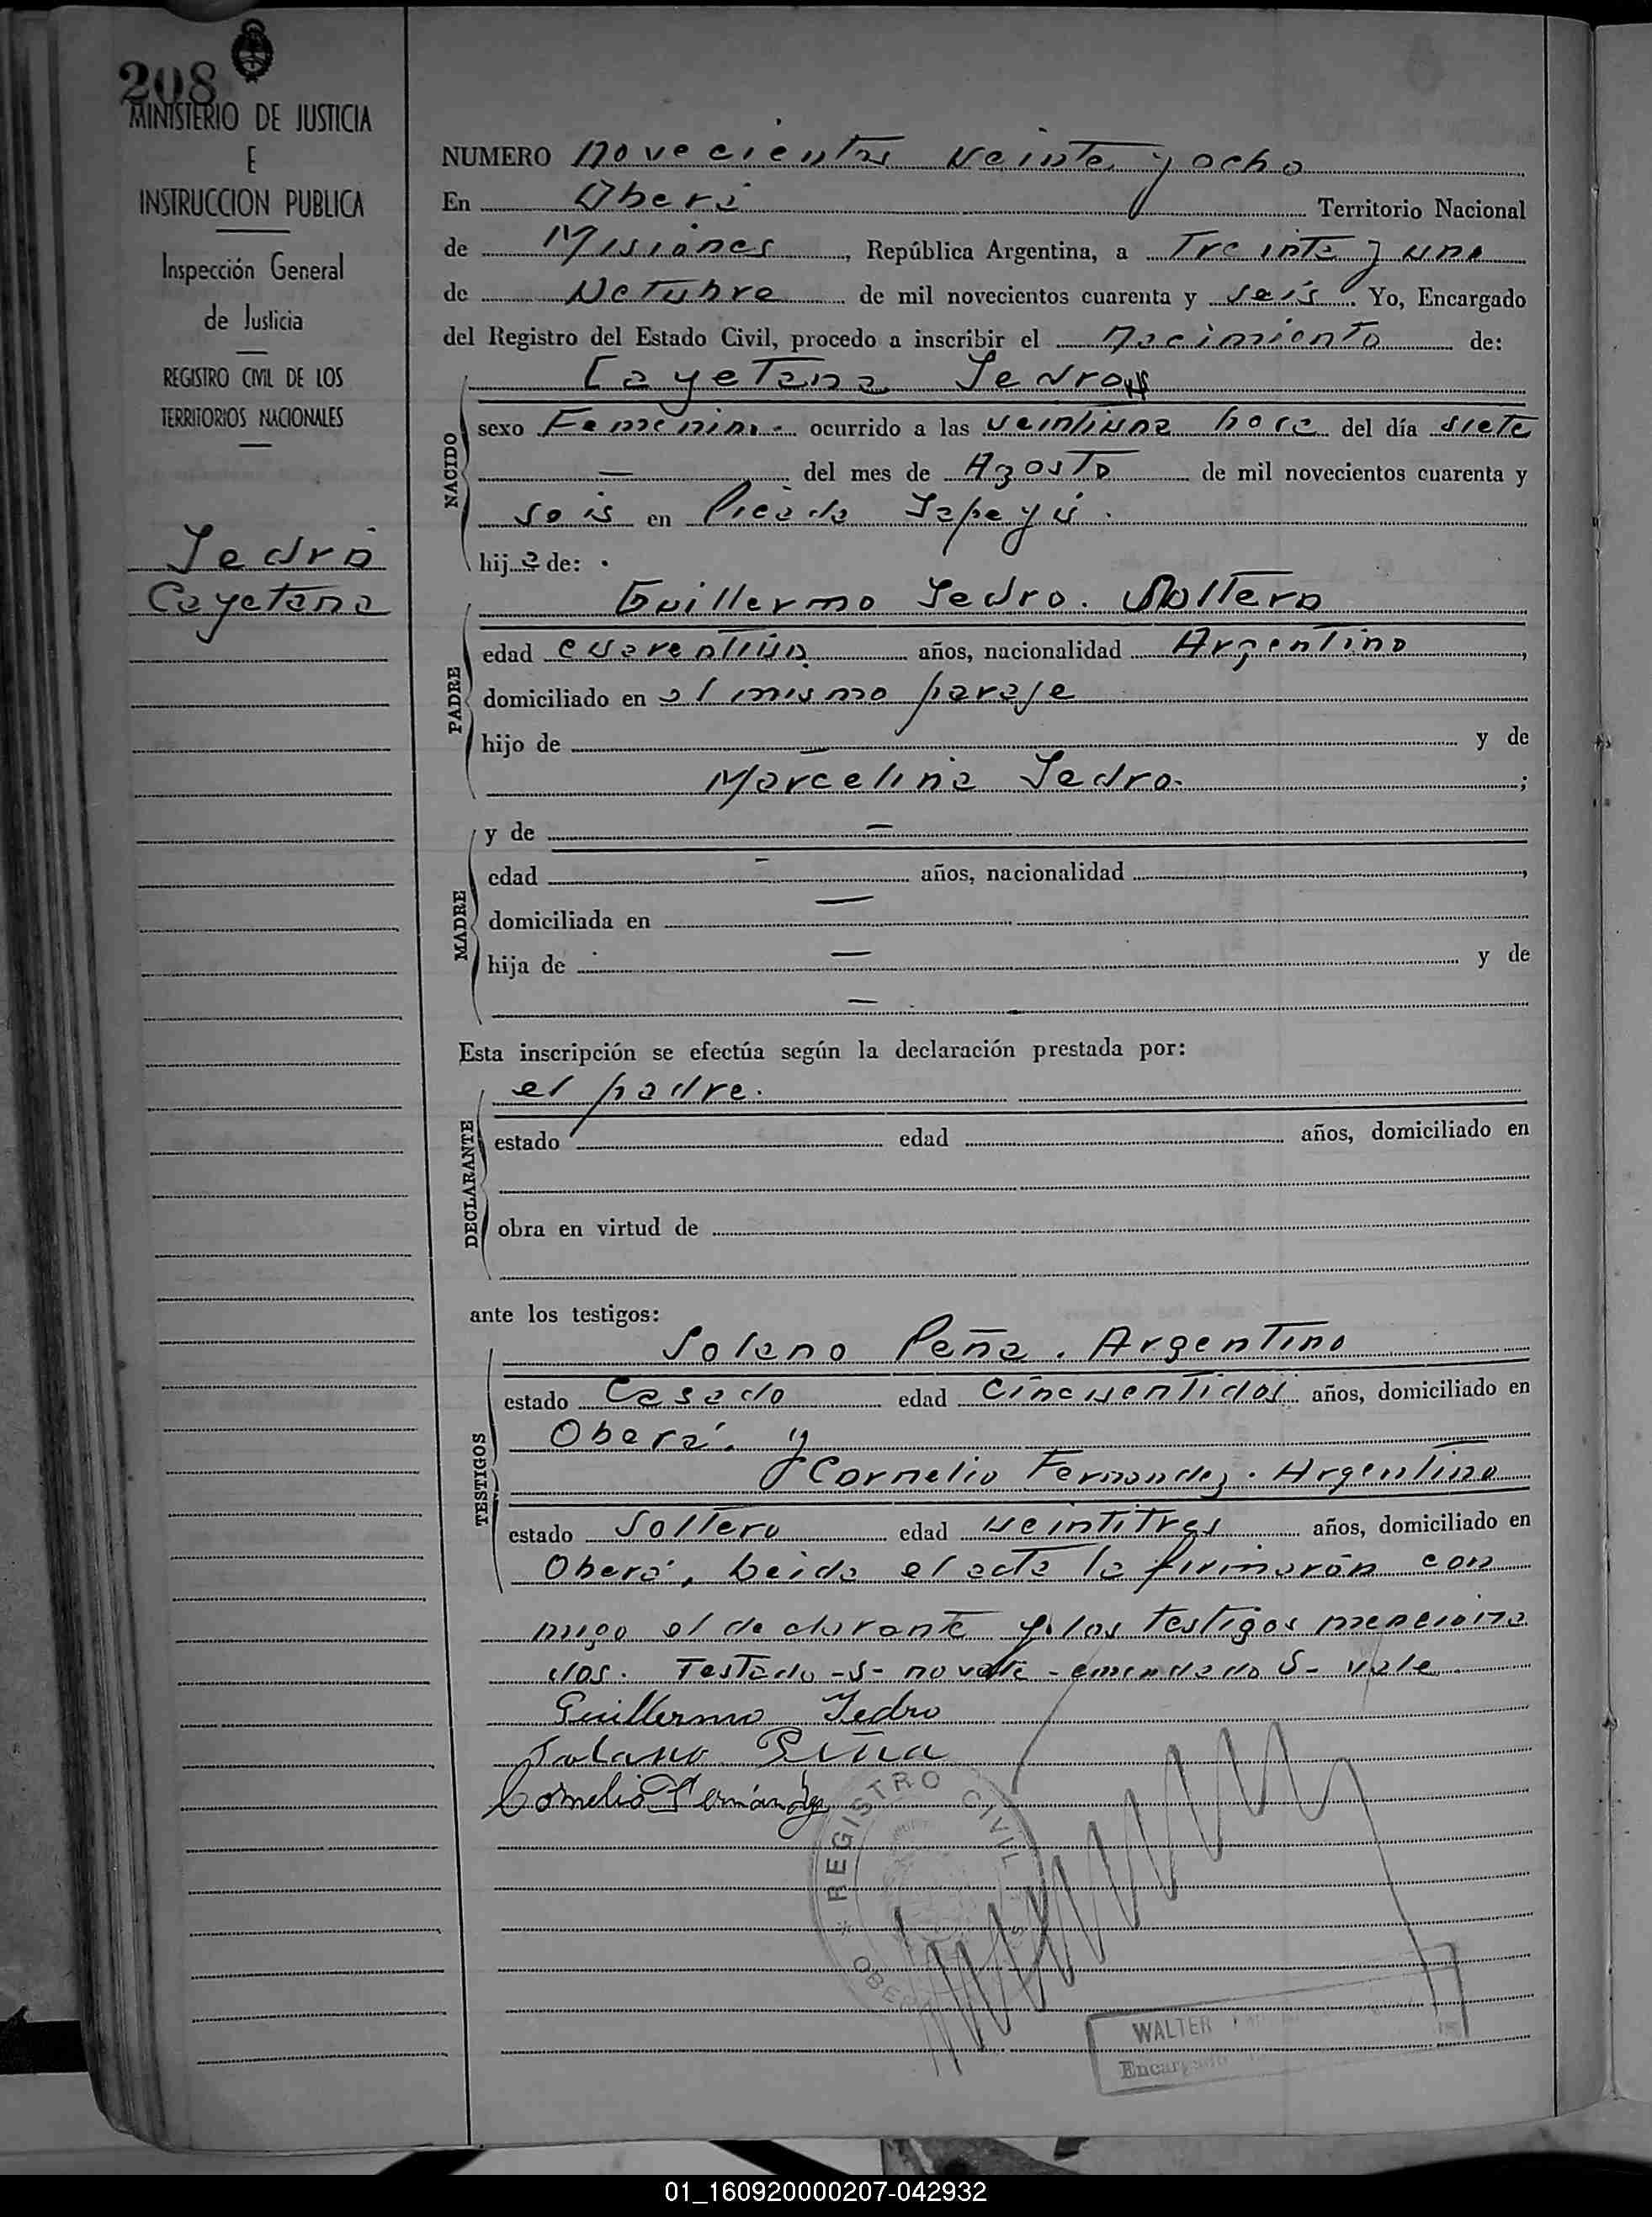 208
MINISTERIO DE JUSTICIA
E
INSTRUCCION PUBLICA
Inspección General
de Justicia
REGISTRO CIVIL DE LOS
TERRITORIOS NACIONALES
Sedro
Cayetana
NUMERO novecientos veinte y ocho
En Oberá Territorio Nacional
de Misiones, República Argentina, a Treinta y uno
de Octubre de mil novecientos cuarenta y seis. Yo, Encargado
del Registro del Estado Civil, procedo a inscribir el Nacimiento de:
NACIDO
Cayetana Sedro
sexo Femenino. ocurrido a las veintiuna hora del día siete
— del mes de Agosto de mil novecientos cuarenta y
seis en Picada Yapeyú.
hija de:
PADRE
Guillermo Sedro. Soltero
edad cuarentiún años, nacionalidad Argentino,
domiciliado en el mismo paraje
hijo de — y de
Marcelina Sedro. ;
MADRE
y de —
edad — años, nacionalidad ,
domiciliada en —
hija de — y de
—
Esta inscripción se efectúa según la declaración prestada por:
DECLARANTE
el padre.
estado edad años, domiciliado en
obra en virtud de
ante los testigos:
TESTIGOS
Solano Peña. Argentino
estado Casado edad Cincuentidos años, domiciliado en
Oberá. y
Cornelio Fernandez. Argentino
estado Soltero edad veintitres años, domiciliado en
Oberá, Leida el acta la firmarón con
migo el declarante y los testigos menciona
dos. Testado -s- no vale - emendado S- vale
Guillermo Sedro
Solano Peña
Cornelio Fernández
REGISTRO CIVIL
OBERA
WALTER
Encargado
01_160920000207-042932